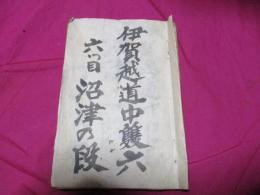 伊賀越道中雙六
六つ目 沼津の段